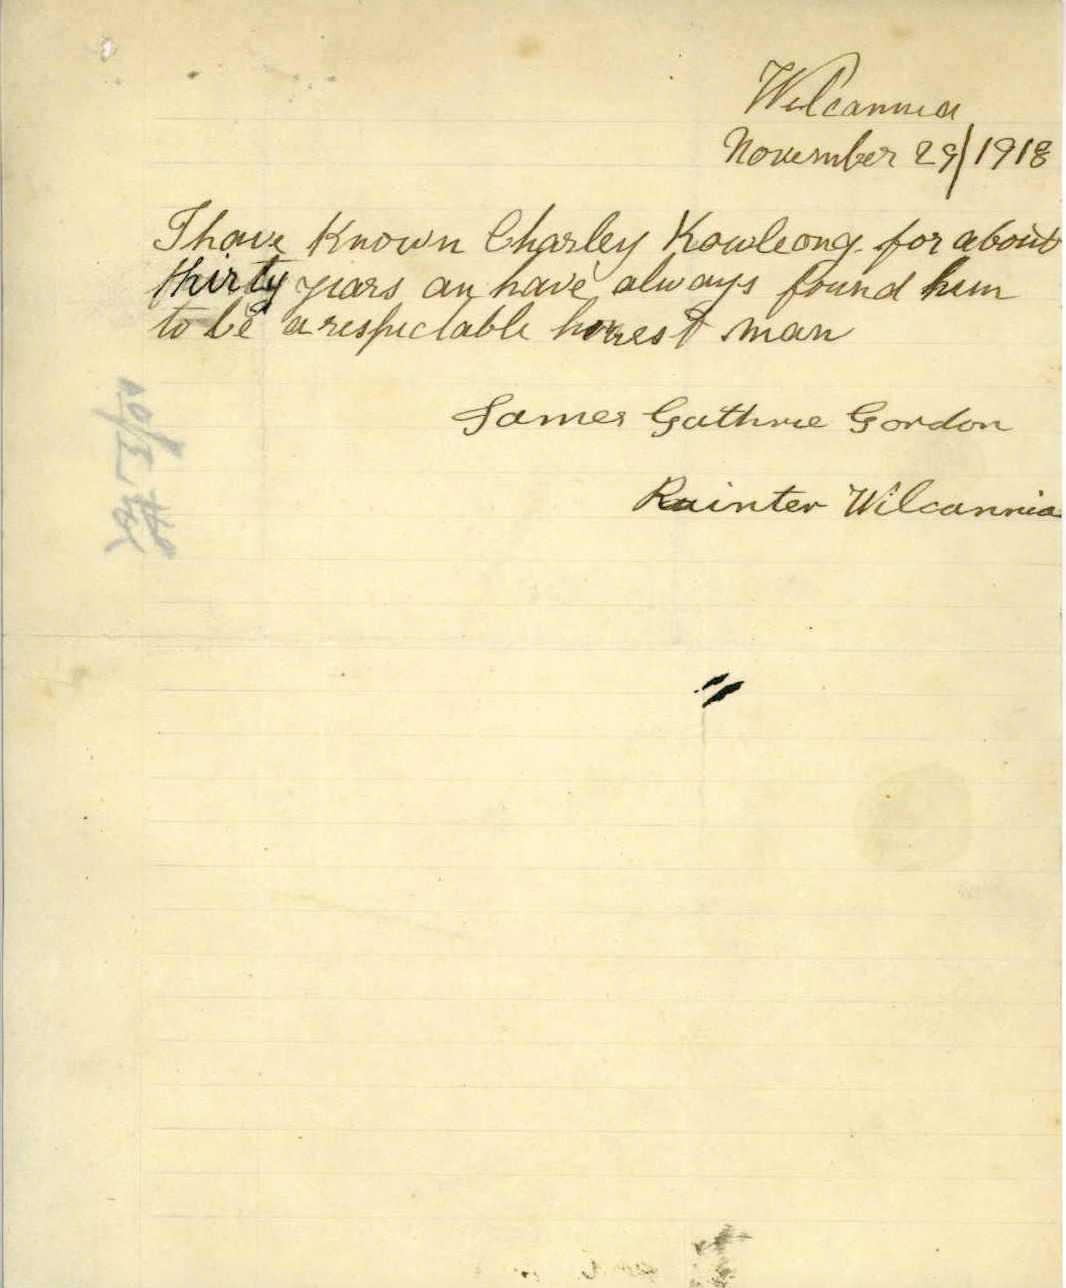 Wilcannia
November 29/1918
I have Known Charley Kowleong for about
thirty years an have always found him
to be a respectable honest man
James Guthrie Gordon
Painter Wilcannia